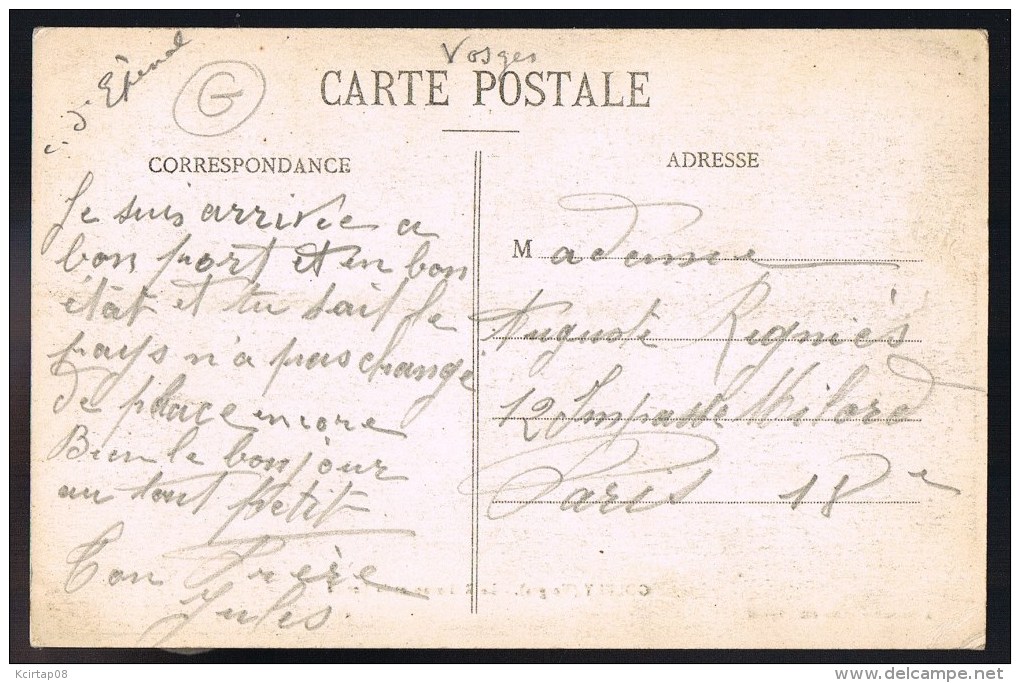 Vosges
d'Epinal
G
CARTE POSTALE
CORRESPONDANCE
Je suis arrivée a
bon port et en bon
état et tu sait le
pays n'a pas changé
de place encore
Bien le bonjour
au tout petit
Ton Frère
Jules
ADRESSE
Madame
Auguste Regniès
12 Impasse Milord
Paris 18e
Kcirtap08
www.delcampe.net